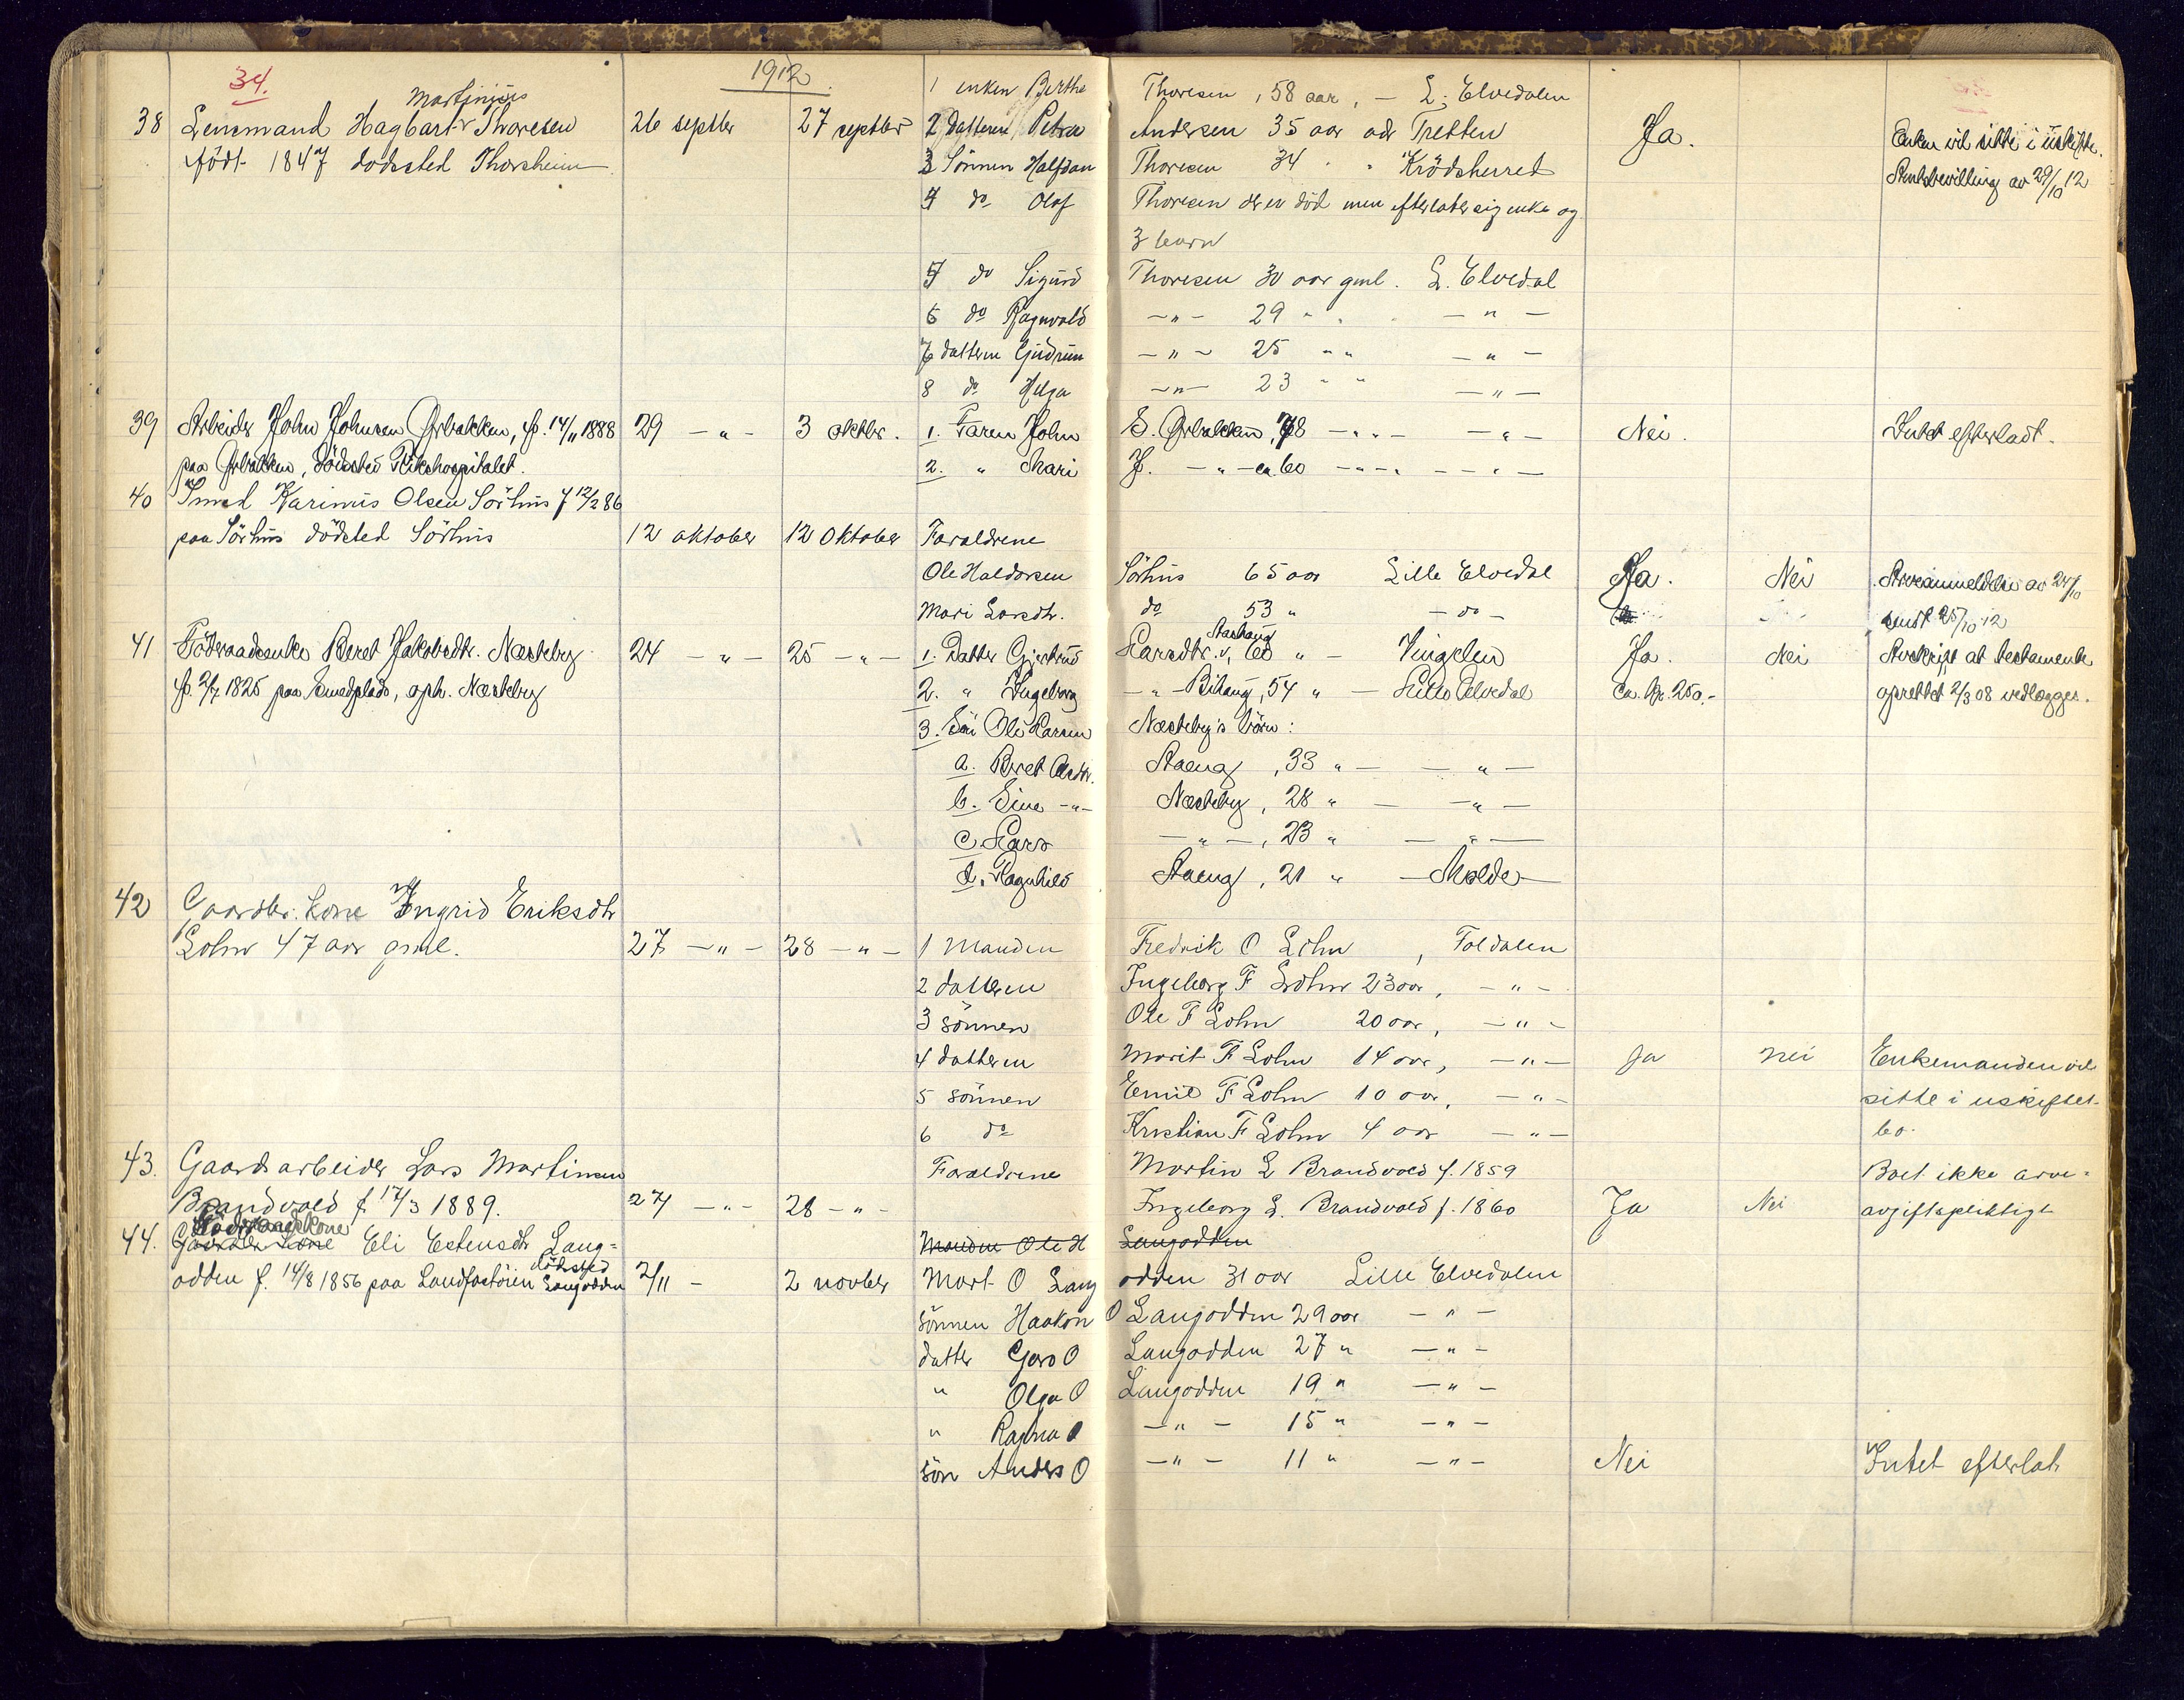 34.
1912
1 enken Berthe Thoresen, 58 aar, — L. Elvedalen
Martinius
38 Lensmand Hagbart Thoresen 26 septbr 27 septbr 2 Datteren Petra Andersen 35 aar adr Tretten Ja. Enken vil sitte i uskifte.
født 1847 dödssted Thorsheim 3 Sönnen Halfdan Thoresen 34 " " Krödsherred Amtsbevilling av 29/10 12
4 do Olaf Thoresen der er död men efterlater sig enke og
3 barn
5 do Sigurd Thoresen 30 aar gml. L. Elvedal
6 do Ragnvald — " — 29 " " — " —
7 datteren Gudrun — " — 25 " " — " —
8 do Helga — " — 23 " " — " —
39 Arbeider John Johnsen Ørbakken, f. 14/11 1888 29 — " — 3 oktbr. 1. Faren John S. Ørbakken, 78 — " — — " — Nei. Intet efterladt.
paa Ørbakken, Dödssted Rikshospitalet. 2. " Mari J. — " — ca 60 — " — — " —
40 Smed Karinus Olsen Sörhus f 12/2 86
paa Sörhus dödsted Sörhus 12 oktober 12 Oktober Foraldrene
Ole Haldorsen Sörhus 65 aar Lille Elvedal Ja. Nei Arveanmeldelse av 24/10
Mari Larsdtr. do 53 " — do — sendt 25/10 12
Aashaug
41 Föderaadsenke Beret Jakobsdtr. Næsteby 24 — " — 25 — " — 1. Datter Gjertrud Larsdtr. , 60 " — Vingelen Ja. Nei Avskrift at testamente
f. 2/7 1825 paa Smedplads, oph. Næsteby 2. " Ingeborg — " — Bihaug, 54 " — Lille Elvedal Ca. kr. 250.- oprettet 2/3 08 vedlægges.
3. Sön Ole Larsen Næsteby's börn:
a. Beret Olsdtr. Aaeng, 33 " — — " —
b. Sine — " — Næsteby, 28 " — — " —
c. Lars — " —, 23 " — " —
d. Ragnhild Aaeng, 21 " — Molde —
42 Gaardbr. kone Ingrid Eriksdtr
Lohn 47 aar gml. 27 — " — 28 — " — 1 Manden Fredrik O Lohn , Foldalen
2 datteren Ingeborg F Lohn 23 aar, — " —
3 sönnen Ole F Lohn 20 aar, — " —
4 datteren Marit F Lohn 14 aar, — " — Ja Nei Enkemanden vil
5 sönnen Emil F Lohn 10 aar, — " — sitte i uskiftet
6 do Kristian F Lohn 4 aar — " — bo.
43. Gaardsarbeider Lars Martinsen Foraldrene Martin L Brandvold f. 1859 Boet ikke arve=
Brandvold f 17/3 1889. 27 — " — 28 — " — Ingeborg L. Brandvold f. 1860 Ja Nei avgiftspliktigt
Föderaadskone
44. Gaardbr kone Eli Estensdtr Lang= Manden Ole H Langodden
dödssted
odden f. 14/8 1856 paa Sandfastöien Langodden 2/11 — 2 novber Mart O Langodden 31 aar Lille Elvedalen
sönnen Haakon O Langodden 29 aar — " —
datter Gero O Langodden 27 " — " —
" Olga O Langodden 19 " — " —
" Ragna O — " — 15 " — " —
sön Anders O — " — 11 " — " — Nei Intet efterlat